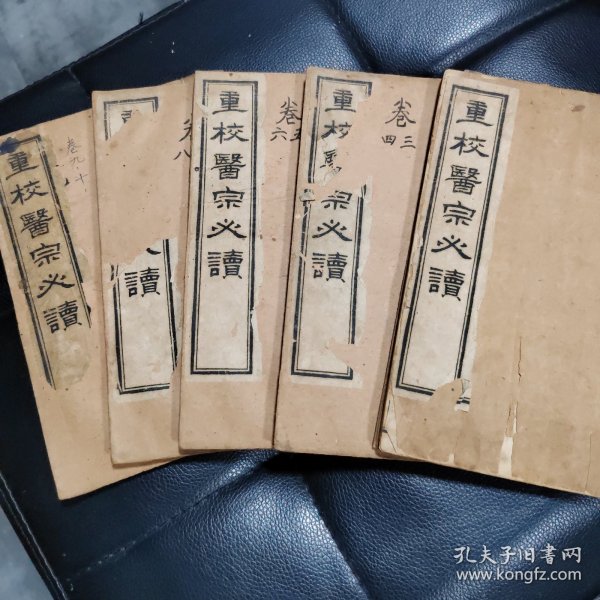 重校醫宗必讀
卷三
四
重校
宗必讀
卷五
六
重校醫宗必讀
八
讀
卷九
十
重校醫宗必讀
孔夫子旧書网
www.kongfz.com